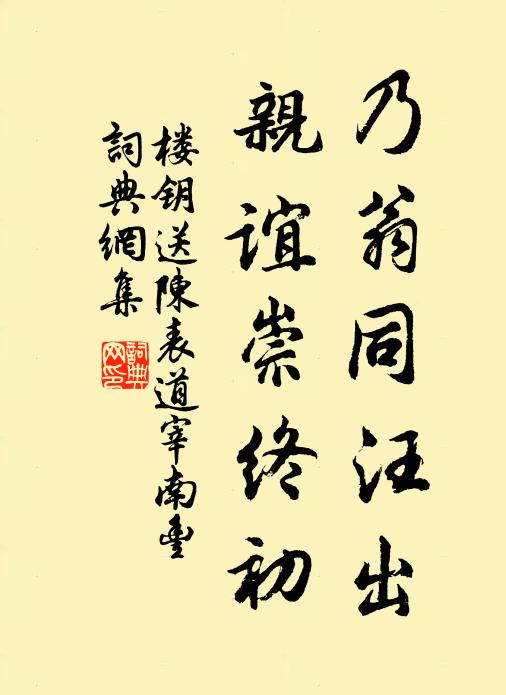 乃翁同汪出
親誼崇終初
楼钥送陳表道宰南豐
詞典網集
詞典網印